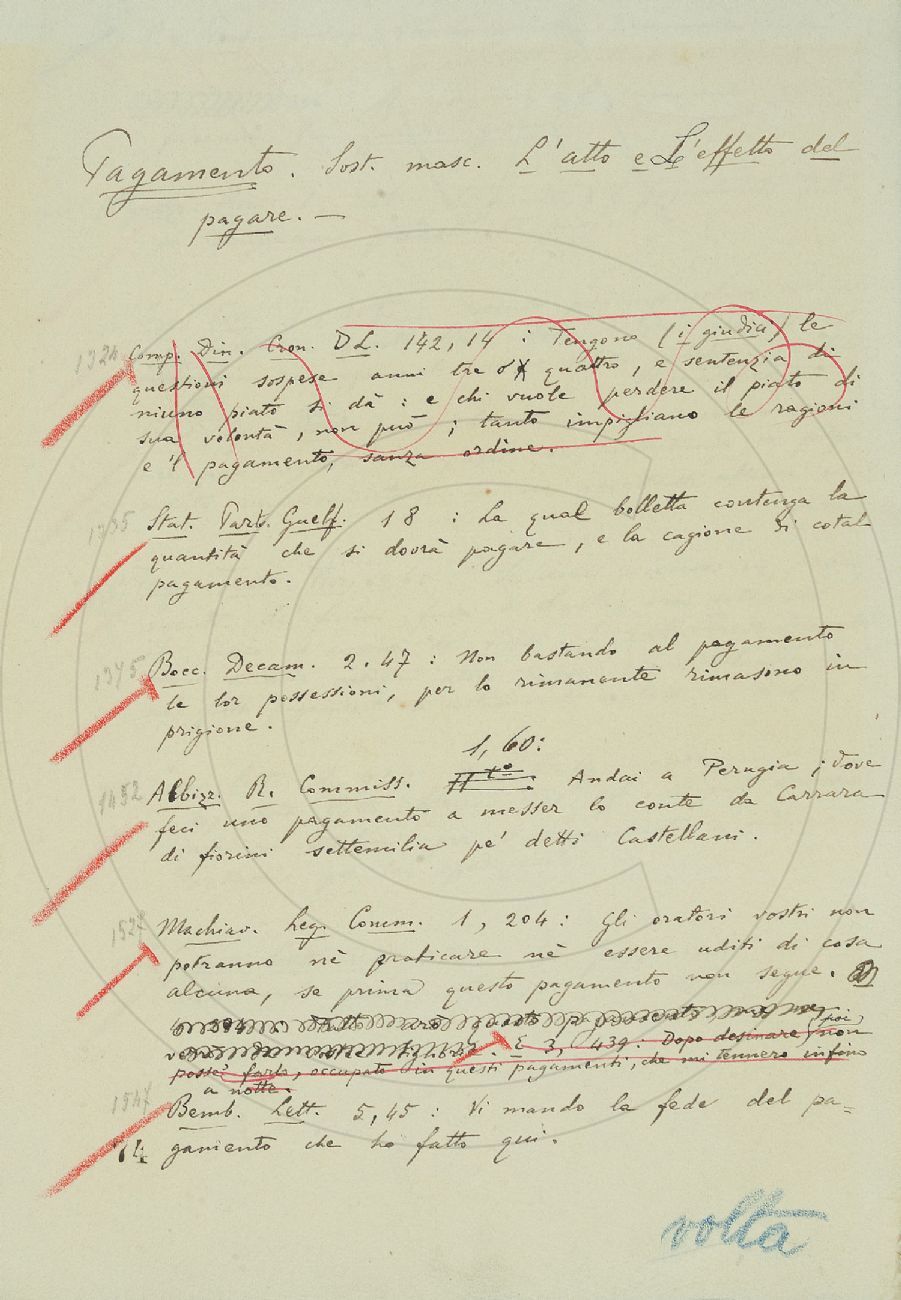 Pagamento. Sost. masc. L'atto e L'effetto del
pagare. —
1324 Comp. Din. Cron. DL. 142, 14 : Tengono (i giudici) le
questioni sospese anni tre o quattro, e sentenzia di
niuno piato si dà : e chi vuole perdere il piato di
sua volontà, non può ; tanto impigliano le ragioni
e 'l pagamento, sanza ordine.
1335 Stat. Part. Guelf. 18 : La qual bolletta contenga la
quantità che si dovrà pagare, e la cagione di cotal
pagamento.
Bocc. Decam. 2. 47 : Non bastando al pagamento
le lor possessioni, per lo rimanente rimasono in
prigione.
1, 60:
1432 Albizz. R. Commiss. Andai a Perugia ; dove
feci uno pagamento a messer lo conte da Carrara
di fiorini settemilia pe' detti Castellani.
1527 Machiav. Leg. Comm. 1, 204 : Gli oratori vostri non
potranno nè praticare nè essere uditi di cosa
alcuna, se prima questo pagamento non segue.
E 3, 439: Dopo desinare (poi) non
posse' farlo, occupato in questi pagamenti, che mi tennero infino
a notte.
1547 Bemb. Lett. 5, 45 : Vi mando la fede del pa=
gamento che ho fatto qui.
74
volta